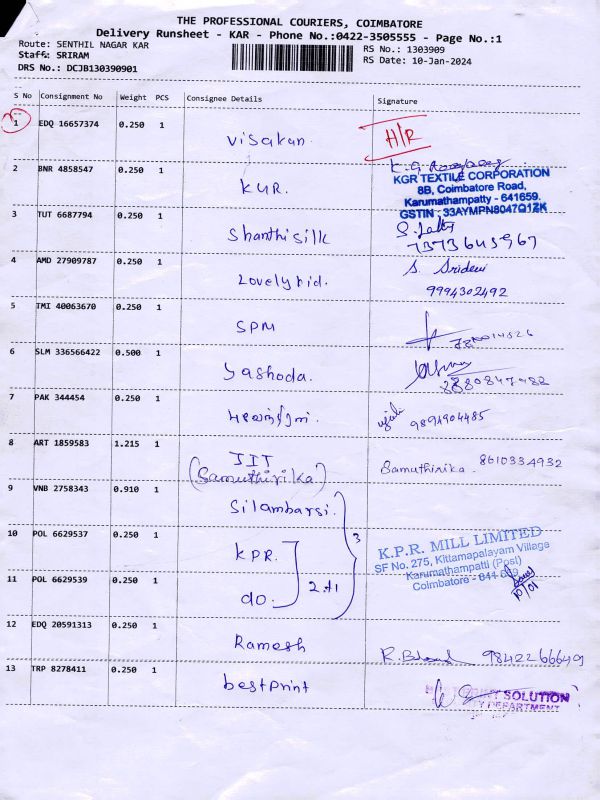 THE PROFESSIONAL COURIERS, COIMBATORE
Delivery Runsheet - KAR - Phone No.:0422-3505555 - Page No.:1
Route: SENTHIL NAGAR KAR
RS No.: 1303909
Staff: SRIRAM
RS Date: 10-Jan-2024
DRS No.: DCJB130390901
S No Consignment No Weight PCS Consignee Details Signature
1 EDQ 16657374 0.250 1 Visakan. H/R
2 BNR 4858547 0.250 1 KUR.
KGR TEXTILE CORPORATION
8B, Coimbatore Road,
Karumathampatty - 641659.
GSTIN : 33AYMPN8047Q1ZK
3 TUT 6687794 0.250 1 Shanthi silk
7373645967
4 AMD 27909787 0.250 1 Lovely bid. S. Sridevi
9994302492
5 TMI 40063670 0.250 1 SPM
6 SLM 336566422 0.500 1 Yashoda.
8880847482
7 PAK 344454 0.250 1 9894904485
8 ART 1859583 1.215 1 JIT
(Samuthirika) Samuthirika. 8610334932
9 VNB 2758343 0.910 1 Silambarsi. 3
10 POL 6629537 0.250 1 KPR.
K.P.R. MILL LIMITED
SF No. 275, Kittampalayam Village
Karumathampatti (Post)
Coimbatore -
11 POL 6629539 0.250 1 do. 2+1 10/01
12 EDQ 20591313 0.250 1 Ramesh 9842266649
13 TRP 8278411 0.250 1 bestprint
SOLUTION
DEPARTMENT